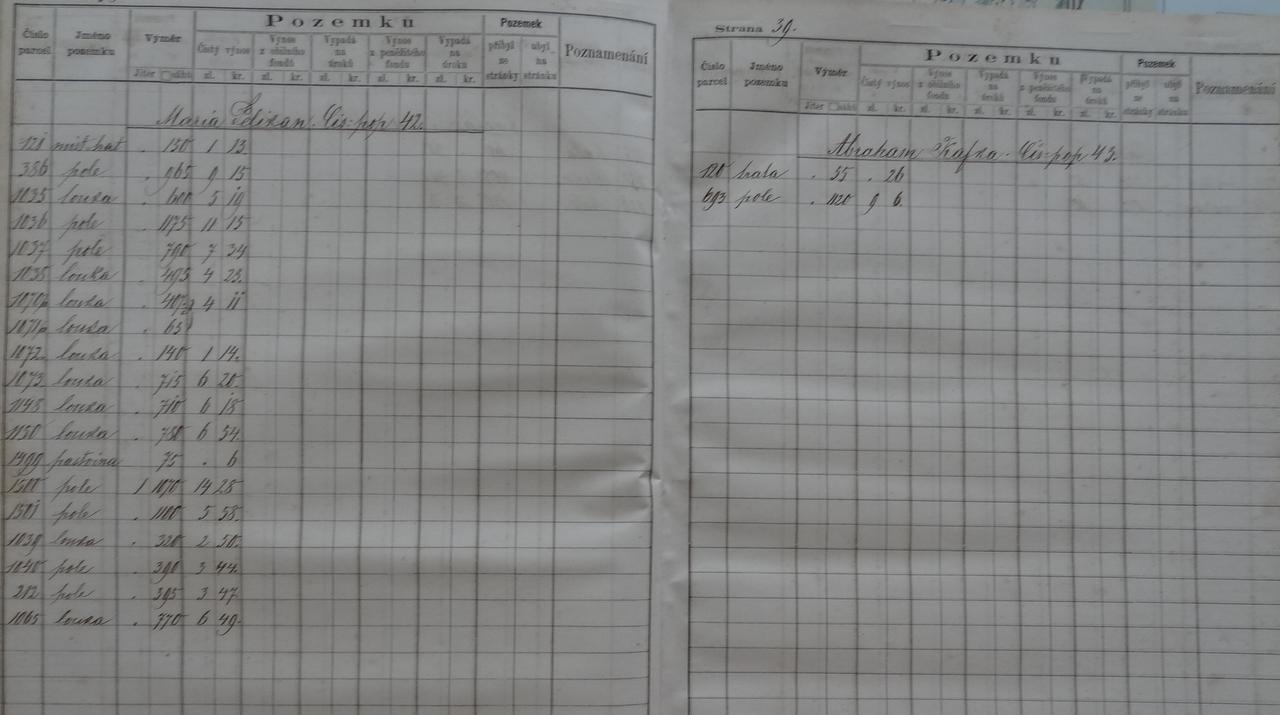 Pozemků
Číslo parcel Jméno pozemku Výměr Čistý výnos Výnos z obilního fondu Vypadá na úroků Výnos z peněžitého fondu Vypadá na úroku Pozemek přibyl ze stránky ubyl na stránku Poznamenání
Jiter □sáhů zl. kr. zl. kr. zl. kr. zl. kr. zl. kr.
Maria Čís. pop 42.
121 . 150 1 13
386 pole . 965 9 15
1035 louka . 600 5 19
1036 pole . 1175 11 15
1037 pole . 790 7 34
1038 louka . 495 4 23.
louka . 4 11
louka . 65
1072 louka . 140 1 14.
1073 louka . 715 6 20.
1148 louka . 710 6 18
1150 louka . 780 6 54.
1499 pastvina . 75 . 6
1500 pole 1 1070 14 28
1501 pole . 1100 5 58.
1039 louka . 320 2 50.
1040 pole . 390 3 44.
212 pole . 395 3 47
1065 louka . 770 6 49.
Strana 39.
Pozemků
Číslo parcel Jméno pozemku Výměr Čistý výnos Výnos z obilního fondu Vypadá na úroků Výnos z peněžitého fondu Vypadá na úroku Pozemek přibyl ze stránky ubyl na stránku Poznamenání
Jiter □sáhů zl. kr. zl. kr. zl. kr. zl. kr. zl. kr.
Abraham Kafka Čís. pop 43.
120 . 55 . 26
693 pole . 1120 9 6.